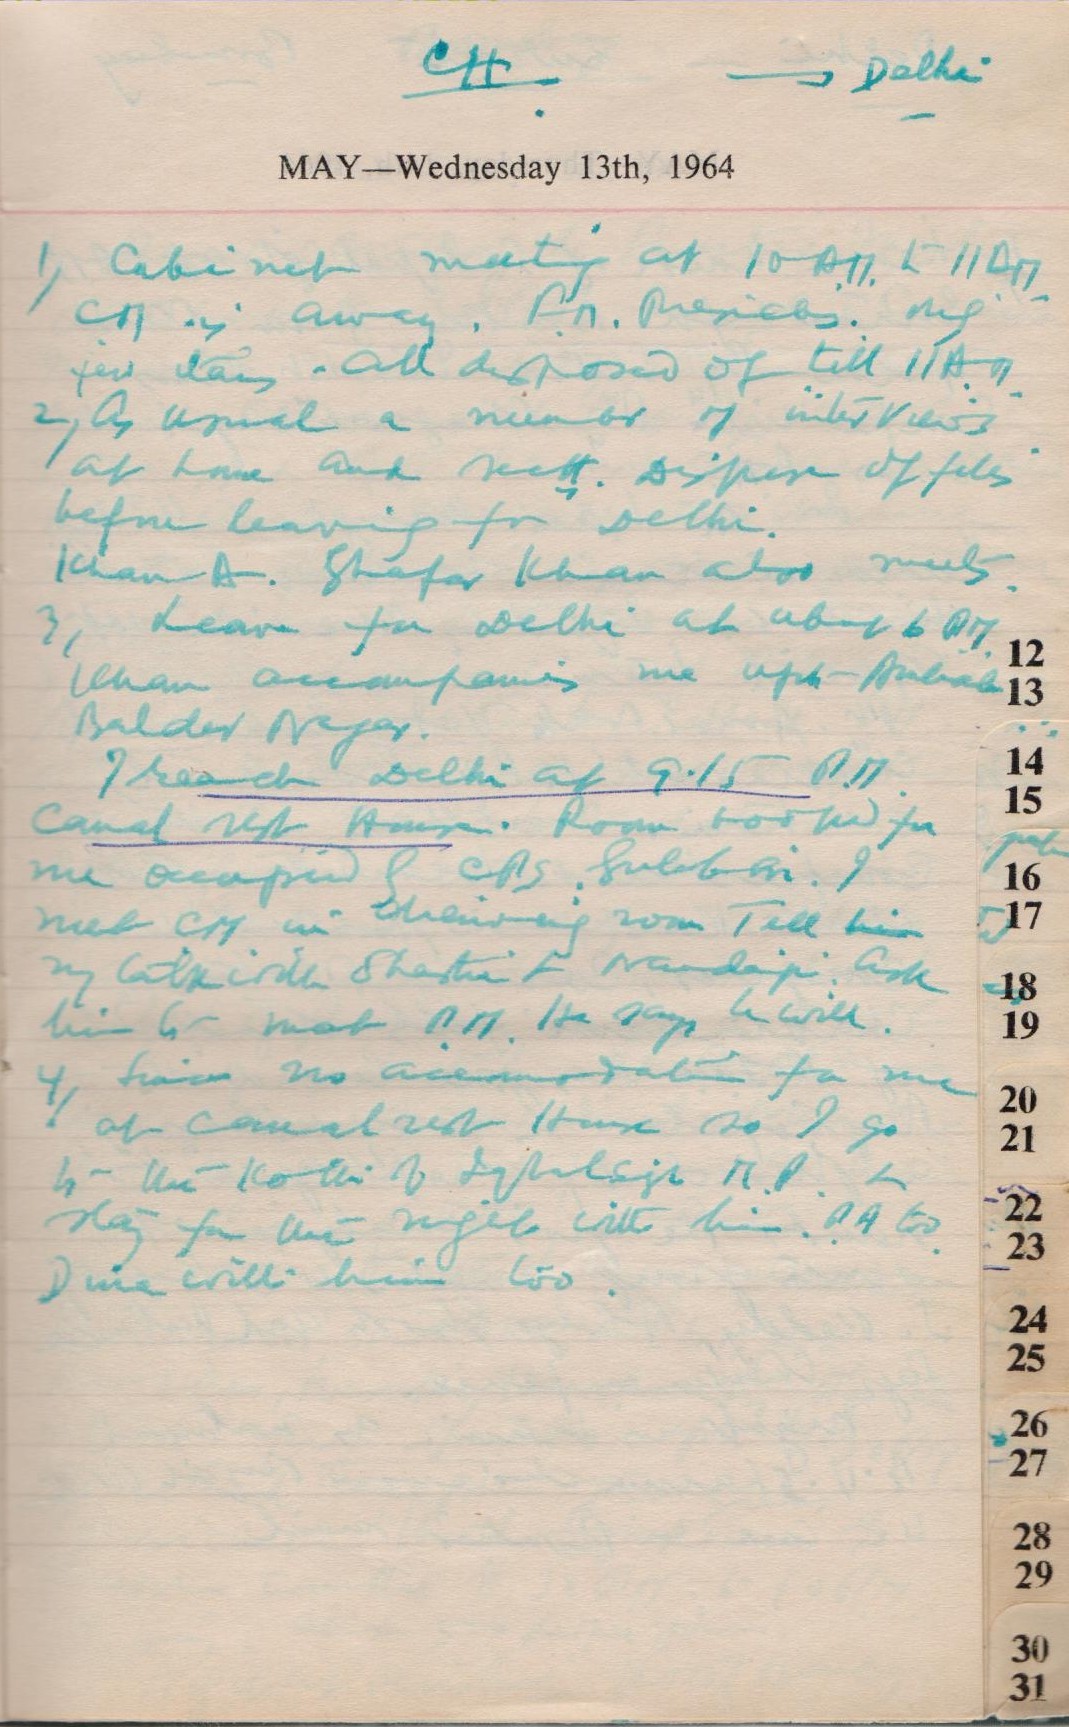 CH → Delhi
MAY—Wednesday 13th, 1964
1, Cabinet meeting at 10 AM. to 11 AM.
CM is away. F.M. Presides. Only
few items. All disposed of till 11 A.M.
2, As usual a number of interviews
at home and Sectt. Dispose of files
before leaving for Delhi.
Khan A. Ghafar Khan also meets.
3, Leave for Delhi at about 6 PM.
Khan accompanies me upto Ambala
Baldev Nagar.
I reach Delhi at 9.15 P.M.
Canal rest House. Room booked for
me occupied by CPS. Gulab. I
meet CM in drawing room Tell him
my talk with Shastri & Nandaji. Ask
him to meet P.M. He says he will.
4, Since no accommodation for me
at canal rest House so I go
to the Kothi of M.P. to
stay for the night with him. PA too
Dine with him too.
12
13
14
15
16
17
18
19
20
21
22
23
24
25
26
27
28
29
30
31